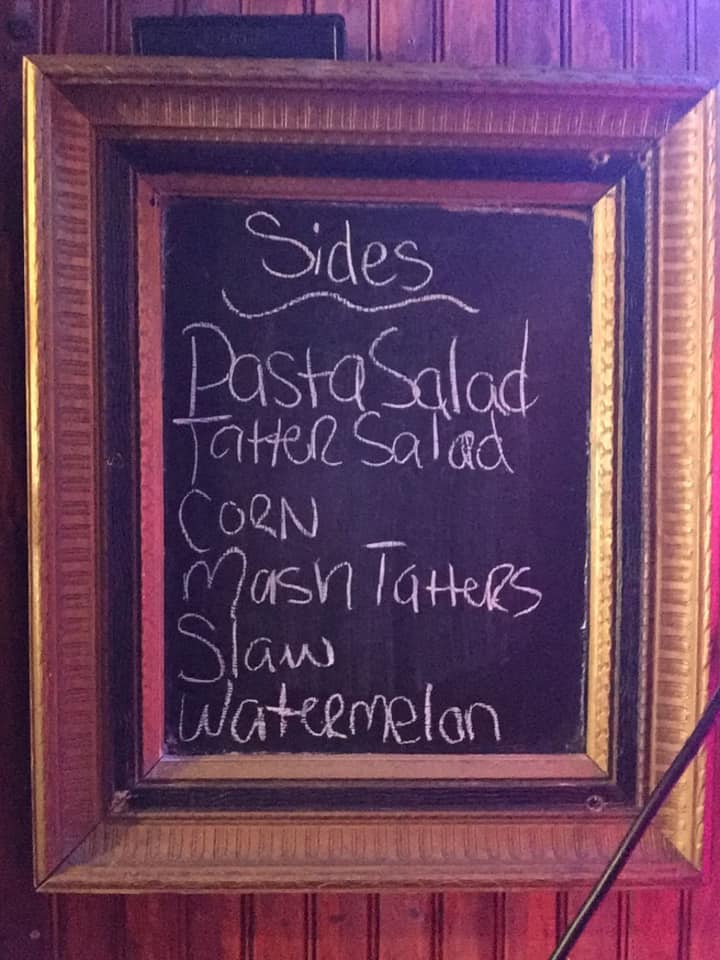 Sides
Pasta Salad
Tatter Salad
CORN
Mash Tatters
Slaw
Watermelon